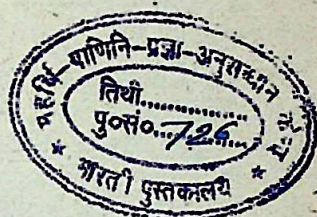 महर्षि-पाणिनि-प्रज्ञा-अनुसन्धान केन्द्र
तिथी..............
पु०सं० 726
* भारती पुस्तकालय *